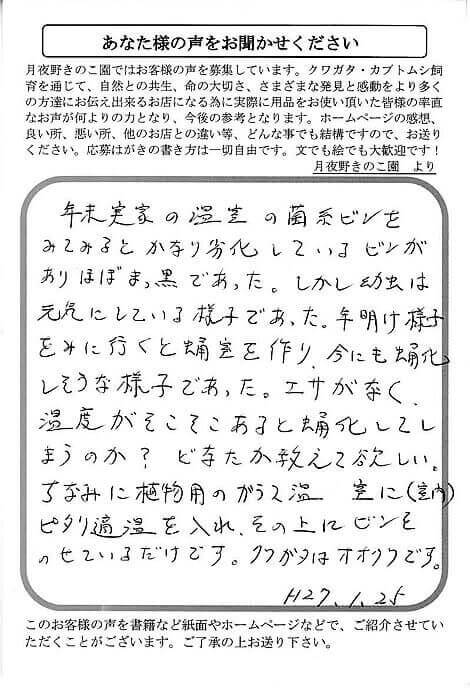 あなた様の声をお聞かせください
月夜野きのこ園ではお客様の声を募集しています。クワガタ・カブトムシ飼
育を通じて、自然との共生、命の大切さ、さまざまな発見と感動をより多く
の方達にお伝え出来るお店になる為に実際に用品をお使い頂いた皆様の率直
なお声が何よりの力となり、今後の参考となります。ホームページの感想、
良い所、悪い所、他のお店との違い等、どんな事でも結構ですので、お送り
ください。応募はがきの書き方は一切自由です。文でも絵でも大歓迎です！
月夜野きのこ園　より
年末実家の温室の菌糸ビンを
みてみるとかなり劣化しているビンが
ありほぼまっ黒であった。しかし幼虫は
元気にしている様子であった。年明け様子
をみに行くと蛹室を作り、今にも蛹化
しそうな様子であった。エサがなく、
温度がそこそこあると蛹化してし
まうのか？どなたか教えて欲しい。
ちなみに植物用のガラス温　室に(室内)
ピタリ適温を入れ、その上にビンを
のせているだけです。クワガタはオオクワです。
H27.1.25
このお客様の声を書籍など紙面やホームページなどで、ご紹介させてい
ただくことがございます。ご了承の上お送り下さい。